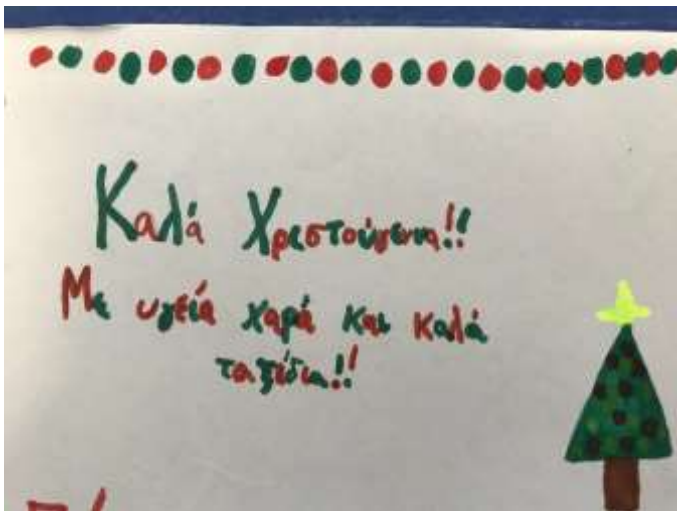 Καλά Χρεστούγεννα!!
Με υγεία χαρά και καλά
ταξίδια!!